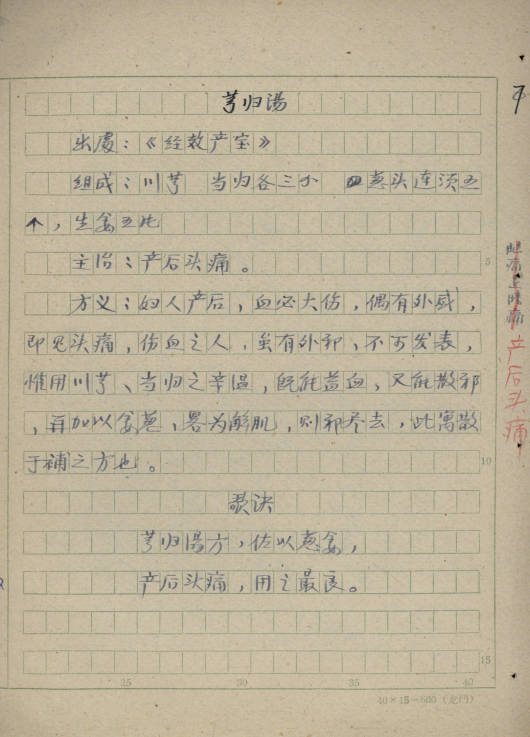 芎归湯
出處：《经效产宝》
组成：川芎 当归各三小 葱头连须五
个，生姜五片
主治：产后头痛。
方义：妇人产后，血必大伤，偶有外感，
即见头痛，伤血之人，虽有外邪，不可发表，
惟用川芎、当归之辛温，既能益血，又能散邪
，再加以姜葱，畧为解肌，则邪亦去，此寓散
于補之方也。
歌诀
芎归湯方，佐以葱姜，
产后头痛，用之最良。
产后头痛
5
10
15
25
30
35
40
40×15=600（龙门）